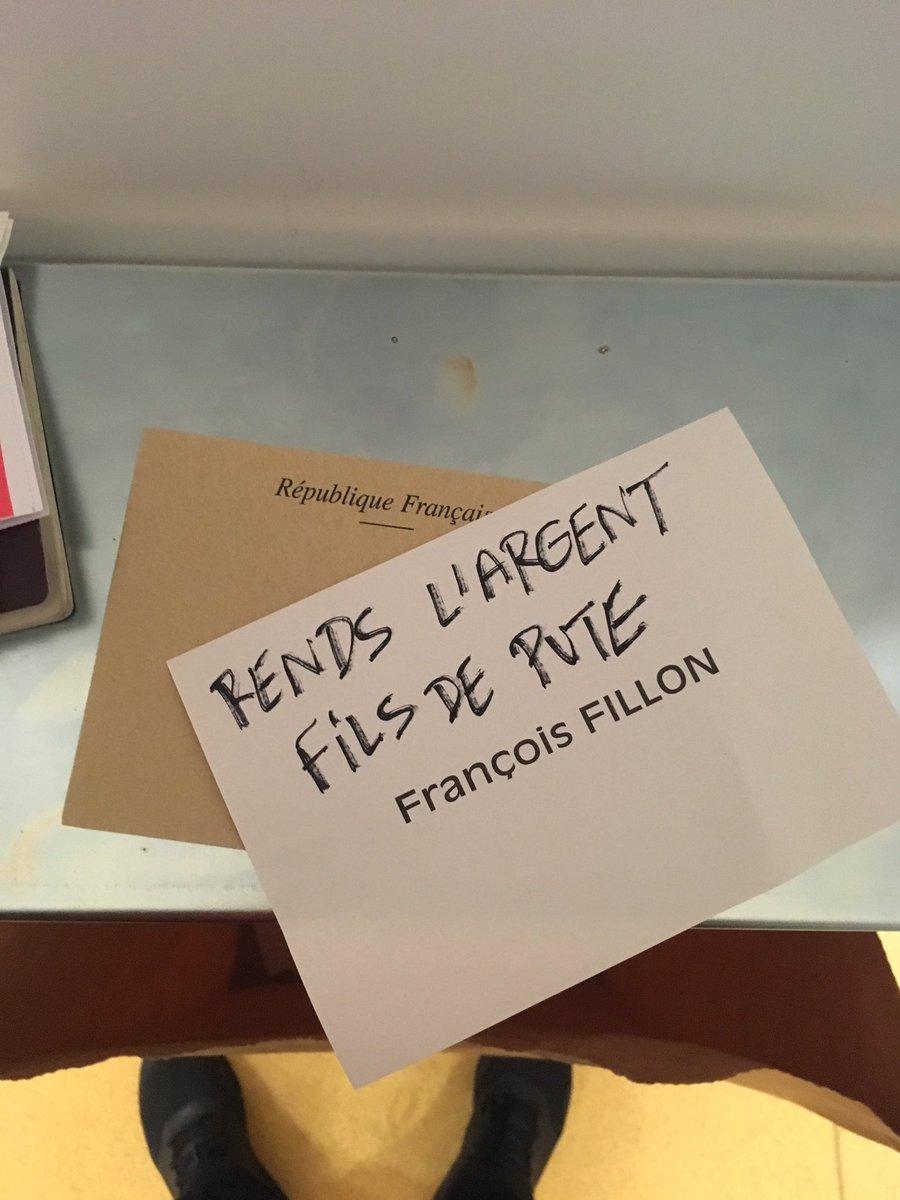 République Français
RENDS L'ARGENT
FILS DE PUTE
François FILLON